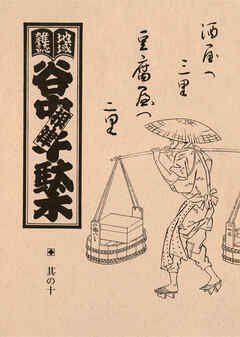 酒屋へ
三里
豆腐屋へ
二里
地域
雑誌
谷中根津千駄木
其の十